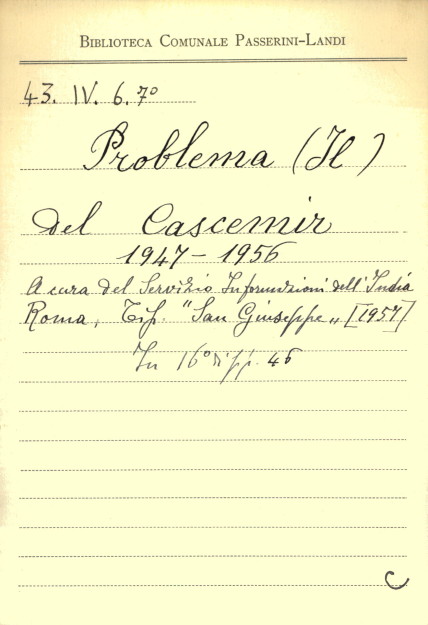 BIBLIOTECA COMUNALE PASSERINI-LANDI
43. IV. 6. 7º
Problema (Il)
del Cascemir
1947-1956
A cura del Servizio Informazioni dell'India
Roma, Tip. "San Giuseppe„ [1957]
In 16º di pp. 46
C